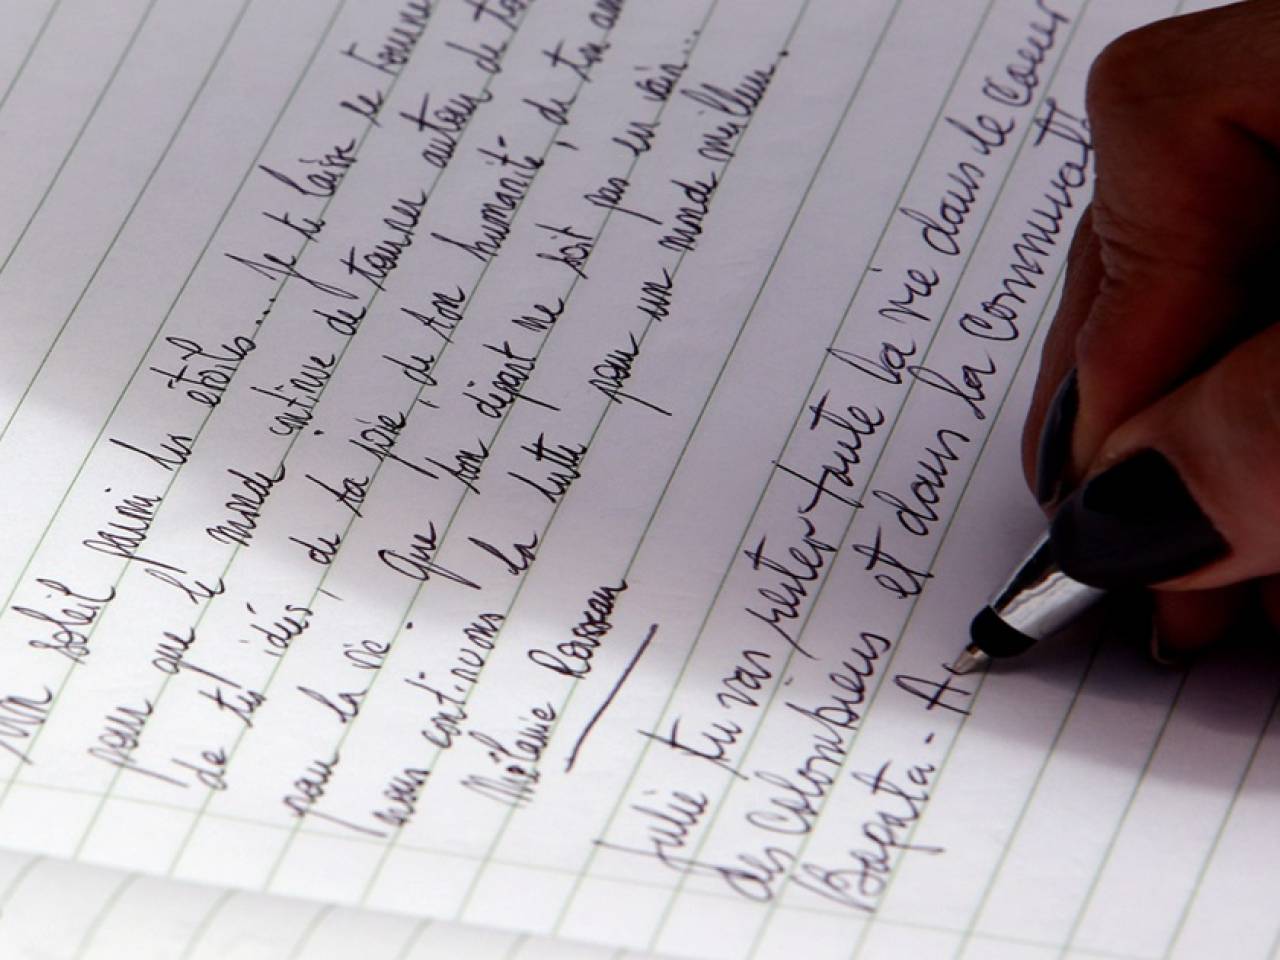 soleil parmi les étoiles... Je te laisse te tourne
pour que le monde continue de tourner autour de ta
de tes idées, de ta joie, de ton humanité, de ton am
pour la vie. que ton départ ne soit pas en vain...
nous continuons la lutte pour un monde meilleur.
Mélanie Rousseau
Julie tu vas rester toute la vie dans le coeur
des colombiens et dans la communaut
Bagota - A